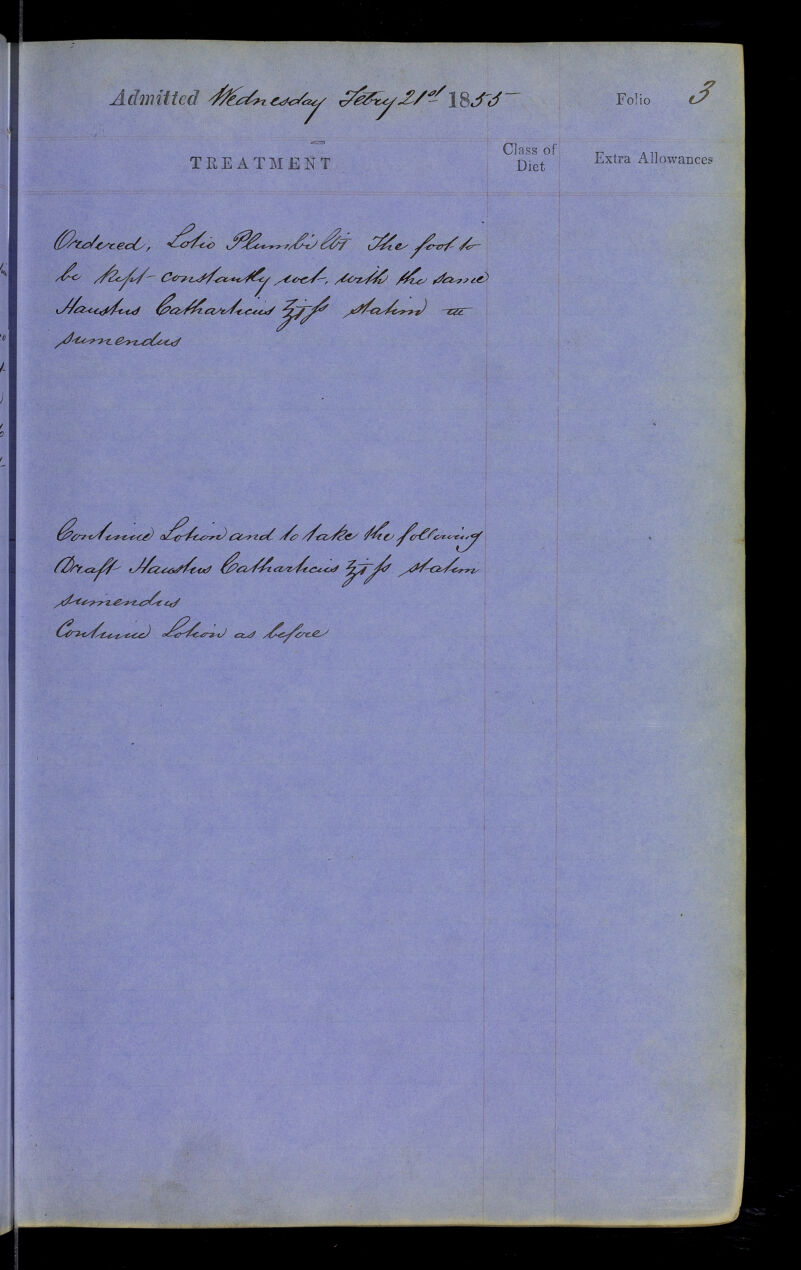 Admitted Wednesday Febry 21st 1855
Folio 3
TREATMENT
Class of Diet
Extra Allowances
Ordered, Lotio Plumbi lbi The foot to
be kept constantly wet, with the same
Haustus Catharticus ℥iſs statim
sumendus
Continue Lotion and to take the following
Draft Haustus Catharticus ℥iſs statim
sumendus
Continue Lotion as before